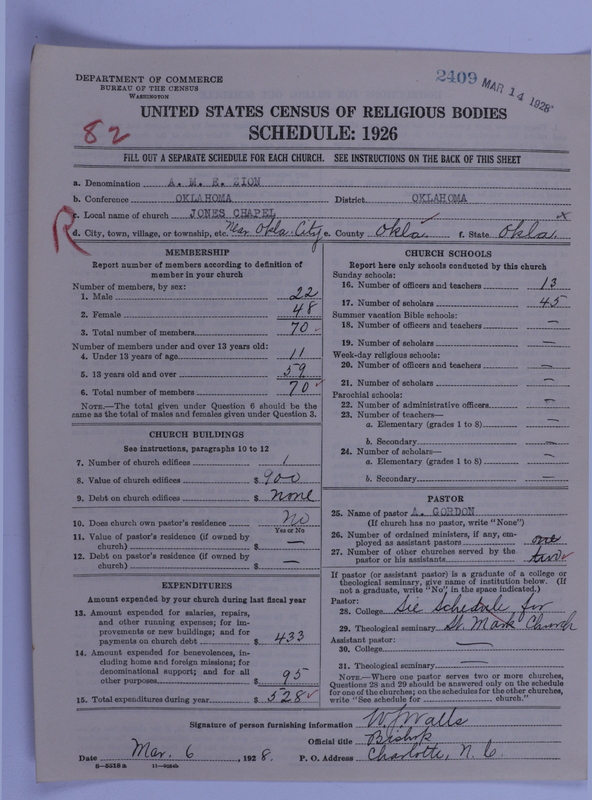 DEPARTMENT OF COMMERCE
BUREAU OF THE CENSUS
WASHINGTON
2409 MAR 14 1928
82
UNITED STATES CENSUS OF RELIGIOUS BODIES
SCHEDULE: 1926
FILL OUT A SEPARATE SCHEDULE FOR EACH CHURCH. SEE INSTRUCTIONS ON THE BACK OF THIS SHEET
a. Denomination A. M. E. ZION
b. Conference OKLAHOMA District OKLAHOMA
c. Local name of church JONES CHAPEL x
R
d. City, town, village, or township, etc. Near Okla. City e. County Okla. f. State Okla.
MEMBERSHIP
Report number of members according to definition of
member in your church
Number of members, by sex:
1. Male 22
2. Female 48
3. Total number of members 70
Number of members under and over 13 years old:
4. Under 13 years of age 11
5. 13 years old and over 59
6. Total number of members 70
NOTE.—The total given under Question 6 should be
the same as the total of males and females given under Question 3.
CHURCH BUILDINGS
See instructions, paragraphs 10 to 12
7. Number of church edifices 1
8. Value of church edifices $ 900
9. Debt on church edifices $ none
10. Does church own pastor's residence No
Yes or No
11. Value of pastor's residence (if owned by
church) $ —
12. Debt on pastor's residence (if owned by
church) $ —
EXPENDITURES
Amount expended by your church during last fiscal year
13. Amount expended for salaries, repairs,
and other running expenses; for im-
provements or new buildings; and for
payments on church debt $ 433
14. Amount expended for benevolences, in-
cluding home and foreign missions; for
denominational support; and for all
other purposes $ 95
15. Total expenditures during year $ 528
CHURCH SCHOOLS
Report here only schools conducted by this church
Sunday schools:
16. Number of officers and teachers 13
17. Number of scholars 45
Summer vacation Bible schools:
18. Number of officers and teachers —
19. Number of scholars —
Week-day religious schools:
20. Number of officers and teachers —
21. Number of scholars —
Parochial schools:
22. Number of administrative officers —
23. Number of teachers—
a. Elementary (grades 1 to 8) —
b. Secondary —
24. Number of scholars—
a. Elementary (grades 1 to 8) —
b. Secondary —
PASTOR
25. Name of pastor A. GORDON
(If church has no pastor, write "None")
26. Number of ordained ministers, if any, em-
ployed as assistant pastors one
27. Number of other churches served by the
pastor or his assistants two
If pastor (or assistant pastor) is a graduate of a college or
theological seminary, give name of institution below. (If
not a graduate, write "No" in the space indicated.)
Pastor:
28. College See Schedule for
29. Theological seminary St. Mark Church
Assistant pastor:
30. College —
31. Theological seminary —
NOTE.—Where one pastor serves two or more churches,
Questions 28 and 29 should be answered only on the schedule
for one of the churches; on the schedules for the other churches,
write "See schedule for church."
Signature of person furnishing information W. J. Walls
Official title Bishop
Date Mar. 6, 1928. P. O. Address Charlotte, N. C.